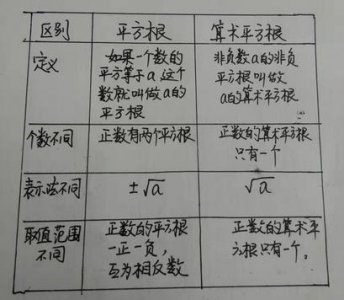 区别 平方根 算术平方根
定义 如果一个数的 非负数a的非负
平方等于a,这个 平方根叫做
数就叫做a的 a的算术平方根
平方根
个数不同 正数有两个平方根 正数的算术平方根
只有一个
表示法不同 ±√a √a
取值范围 正数的平方根 正数的算术平
不同 一正一负, 方根只有一个。
互为相反数